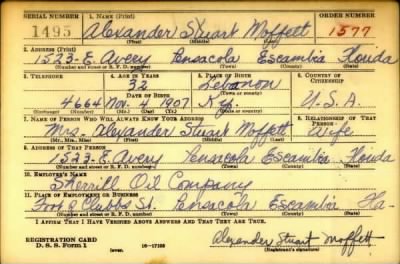 SERIAL NUMBER 1. NAME (Print) ORDER NUMBER
1495 Alexander Stuart Moffett 1577
(First) (Middle) (Last)
2. ADDRESS (Print)
1523-E. Avery Pensacola Escambia Florida
(Number and street or R. F. D. number) (Town) (County) (State)
3. TELEPHONE 4. AGE IN YEARS 5. PLACE OF BIRTH 6. COUNTRY OF CITIZENSHIP
32 Lebanon
4664 DATE OF BIRTH (Town or county)
Nov. 4 1907 Ky. U.S.A.
(Exchange) (Number) (Mo.) (Day) (Yr.) (State or country)
7. NAME OF PERSON WHO WILL ALWAYS KNOW YOUR ADDRESS 8. RELATIONSHIP OF THAT PERSON
Mrs. Alexander Stuart Moffett Wife
(Mr., Mrs., Miss) (First) (Middle) (Last)
9. ADDRESS OF THAT PERSON
1523-E. Avery Pensacola Escambia Florida
(Number and street or R. F. D. number) (Town) (County) (State)
10. EMPLOYER'S NAME
Sherrill Oil Company
11. PLACE OF EMPLOYMENT OR BUSINESS
Foot Chubbs St. Pensacola Escambia Fla-
(Number and street or R. F. D. number) (Town) (County) (State)
I AFFIRM THAT I HAVE VERIFIED ABOVE ANSWERS AND THAT THEY ARE TRUE.
REGISTRATION CARD
D. S. S. Form 1 (over) 16-17105 Alexander Stuart Moffett
(Registrant's signature)